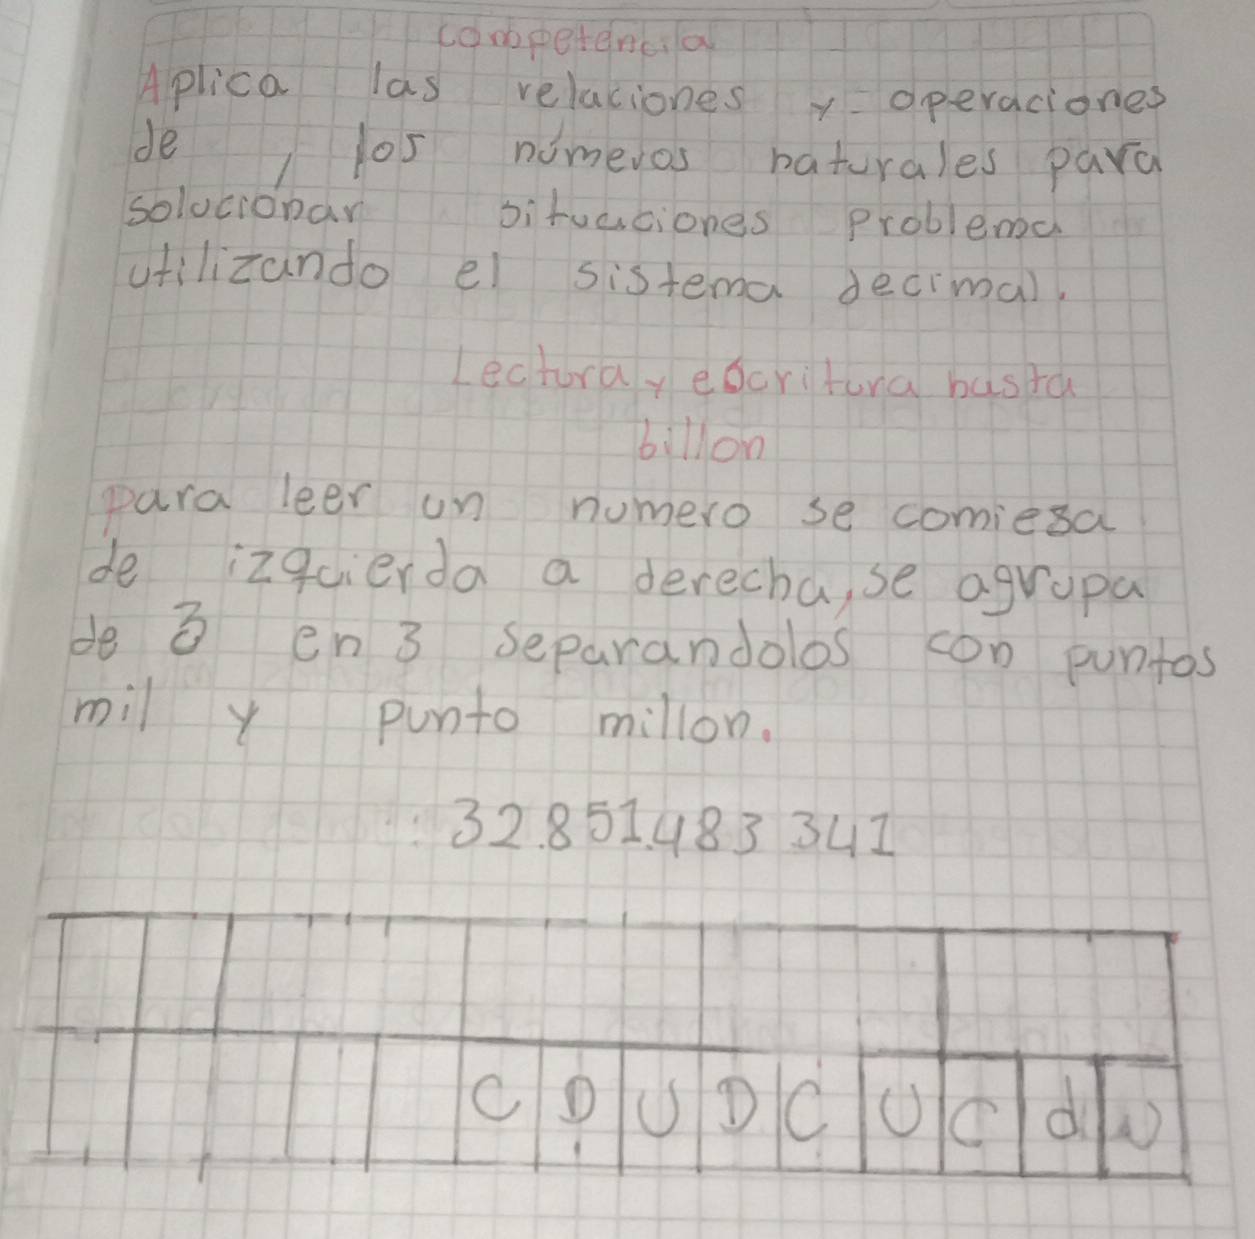 competencia
Aplica las relaciones y operaciones
de los números naturales para
solucionar situaciones problema
utilizando el sistema decimal.
Lectura y escritura hasta
billon
para leer un numero se comiesa
de izquierda a derecha, se agrupa
de 3 en 3 separandolos con puntos
mil y punto millon.
32.851.483 341
C D U D C U C d U